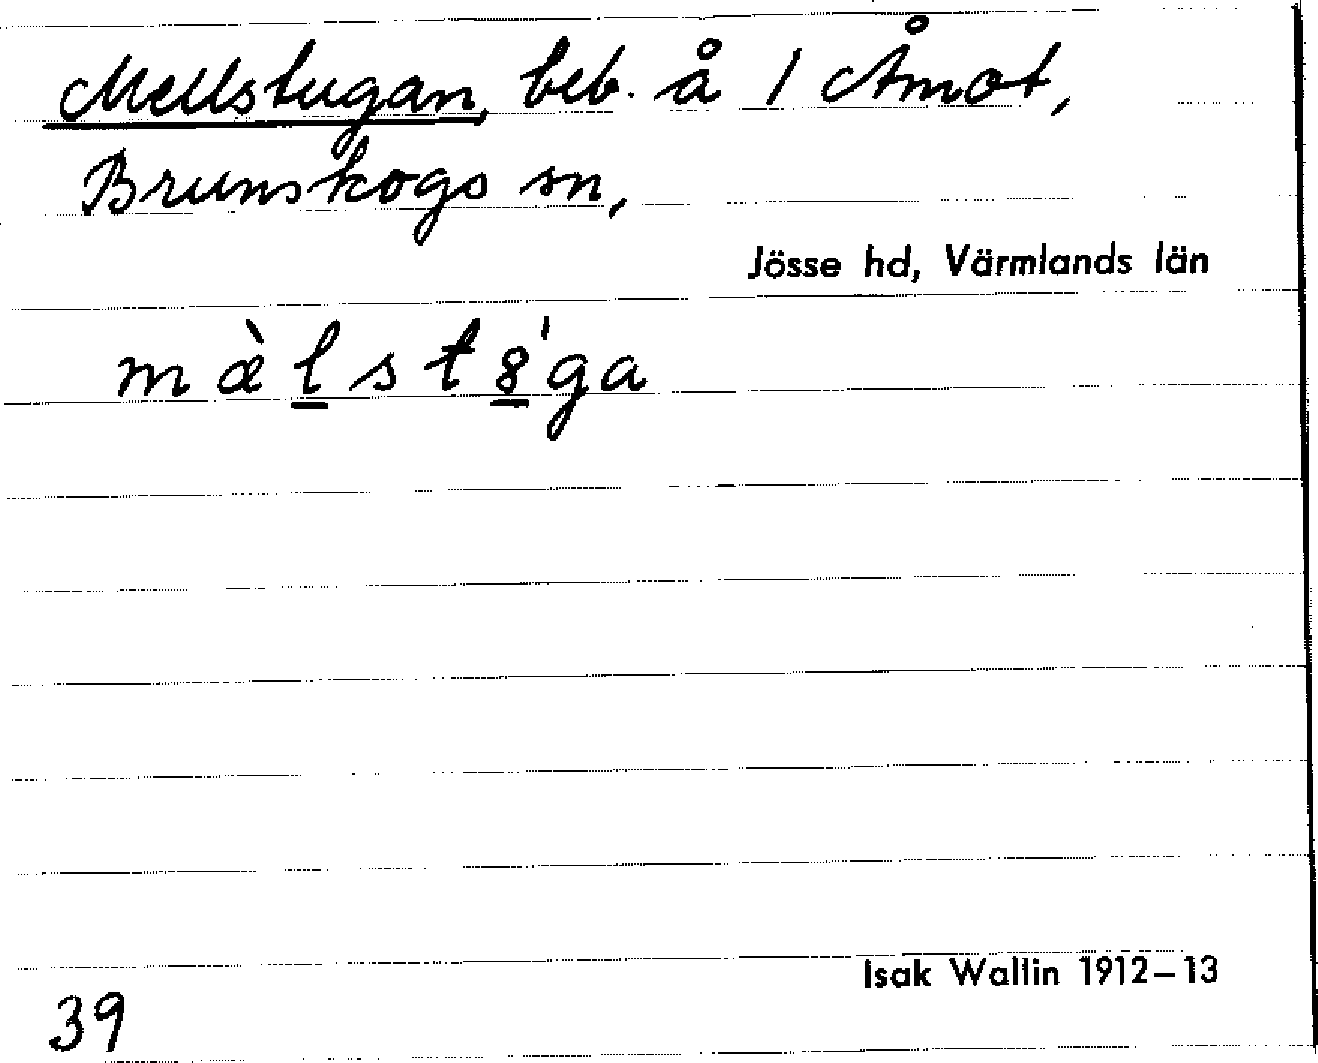 Mellstugan, beb. å 1 Åmot,
Brunskogs sn,
Jösse hd, Värmlands län
mæ̀l̲st8̲'ga
Isak Wallin 1912–13
39